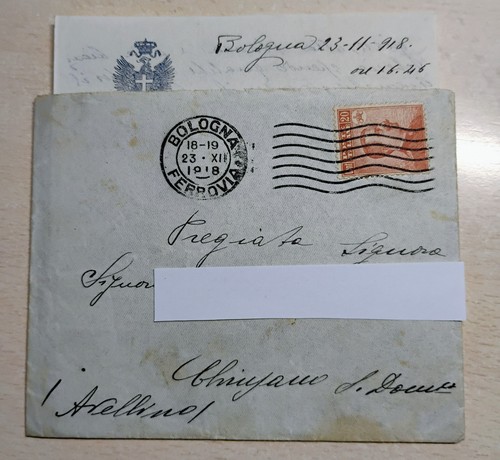 Bologna 23-11-918.
ore 16.46
BOLOGNA
18-19
23 · XI
1918
FERROVIA
20
Pregiata Signora
Signora
Chiusano S. Domco
(Avellino)